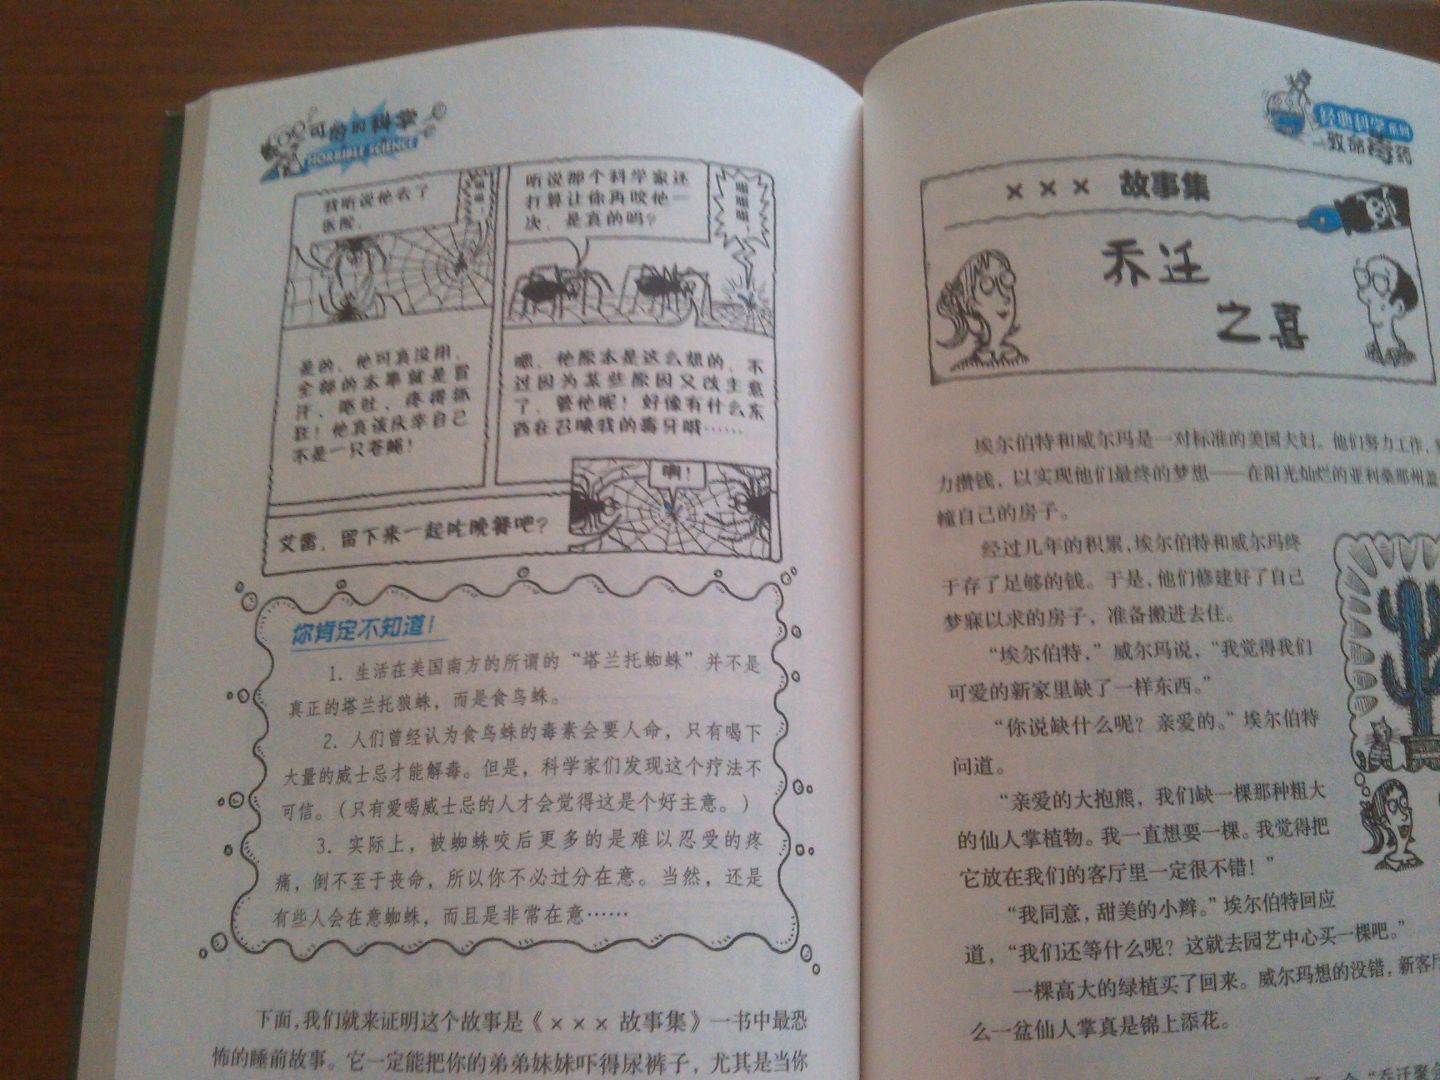 可怕的科学
HORRIBLE SCIENCE
我听说他去了
医院。
嗡嗡。
听说那个科学家还
打算让你再咬他一
次，是真的吗？
嗡嗡嗡。
是的，他可真没用，
全部的本事就是冒
汗、呕吐、疼得抓
狂！他真该庆幸自己
不是一只苍蝇！
嗯，他原本是这么想的，不
过因为某些原因又改主意
了，管他呢！好像有什么东
西在召唤我的毒牙哦……
啊！
艾雷，留下来一起吃晚餐吧？
你肯定不知道！
1. 生活在美国南方的所谓的“塔兰托蜘蛛”并不是
真正的塔兰托狼蛛，而是食鸟蛛。
2. 人们曾经认为食鸟蛛的毒素会要人命，只有喝下
大量的威士忌才能解毒。但是，科学家们发现这个疗法不
可信。（只有爱喝威士忌的人才会觉得这是个好主意。）
3. 实际上，被蜘蛛咬后更多的是难以忍受的疼
痛，倒不至于丧命，所以你不必过分在意。当然，还是
有些人会在意蜘蛛，而且是非常在意……
下面，我们就来证明这个故事是《×××故事集》一书中最恐
怖的睡前故事。它一定能把你的弟弟妹妹吓得尿裤子，尤其是当你
经典科学系列
致命毒药
××× 故事集
乔迁
之喜
埃尔伯特和威尔玛是一对标准的美国夫妇。他们努力工作，
力攒钱，以实现他们最终的梦想——在阳光灿烂的亚利桑那州盖
幢自己的房子。
经过几年的积累，埃尔伯特和威尔玛终
于存了足够的钱。于是，他们修建好了自己
梦寐以求的房子，准备搬进去住。
“埃尔伯特，”威尔玛说，“我觉得我们
可爱的新家里缺了一样东西。”
“你说缺什么呢？亲爱的。”埃尔伯特
问道。
“亲爱的大抱熊，我们缺一棵那种粗大
的仙人掌植物。我一直想要一棵。我觉得把
它放在我们的客厅里一定很不错！”
“我同意，甜美的小辫。”埃尔伯特回应
道，“我们还等什么呢？这就去园艺中心买一棵吧。”
一棵高大的绿植买了回来。威尔玛想的没错，新客厅
么一盆仙人掌真是锦上添花。
一个“乔迁聚会